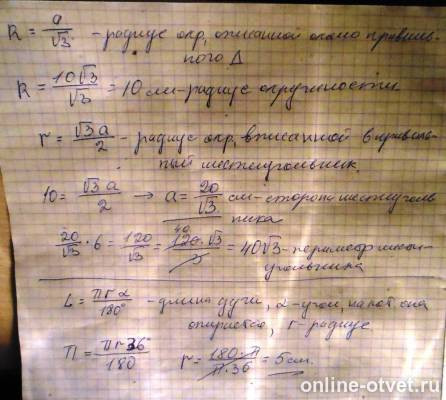 R = a/√3 - радиус окр, описанной около правиль-
ного Δ
R = 10√3/√3 = 10 см - радиус окружности
r = √3a/2 - радиус окр, вписанной в правиль-
ный шестиугольник.
10 = √3a/2 → a = 20/√3 см - сторона шестиуголь
ника
20/√3 · 6 = 120/√3 = 120·√3/3 = 40√3 - периметр шест-
угольника
L = πrα/180° - длина дуги, α - угол, на кот. она
опирается, r - радиус
π = πr36°/180 r = 180·π/π·36 = 5 см.
online-otvet.ru